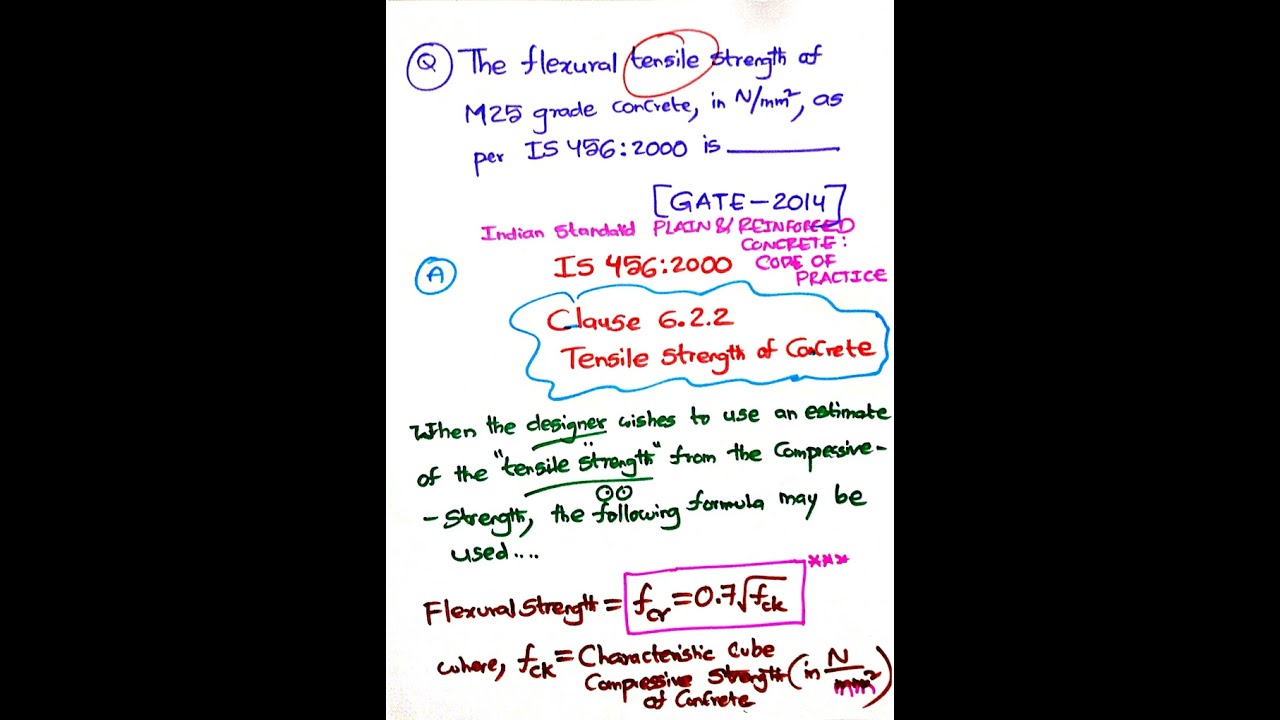 Q The flexural tensile strength of
M25 grade concrete, in N/mm², as
per IS 456:2000 is ________
[GATE-2014]
Indian Standard PLAIN & REINFORCED
CONCRETE:
CODE OF
PRACTICE
A IS 456:2000
Clause 6.2.2
Tensile Strength of Concrete
When the designer wishes to use an estimate
of the "tensile "strength" from the Compressive-
- Strength, the following formula may be
used....
Flexural Strength = f_cr = 0.7√f_ck ***
where, f_ck = Characteristic Cube
Compressive Strength (in N/mm²)
of Concrete